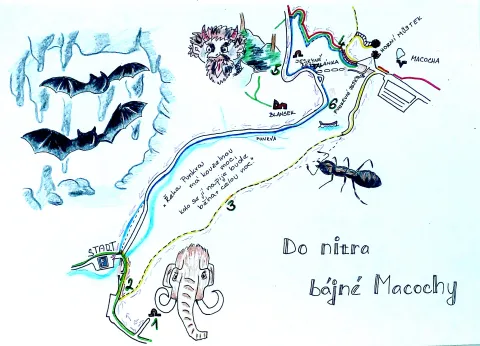 HORNÍ MŮSTEK
MACOCHA
5
4
BLANSEK
6
PUNKVA
„Řeka Punkva
má kouzelnou
moc,
kdo se jí napije bude
běhat celou noc."
3
START
2
1
Do nitra
bájné Macochy